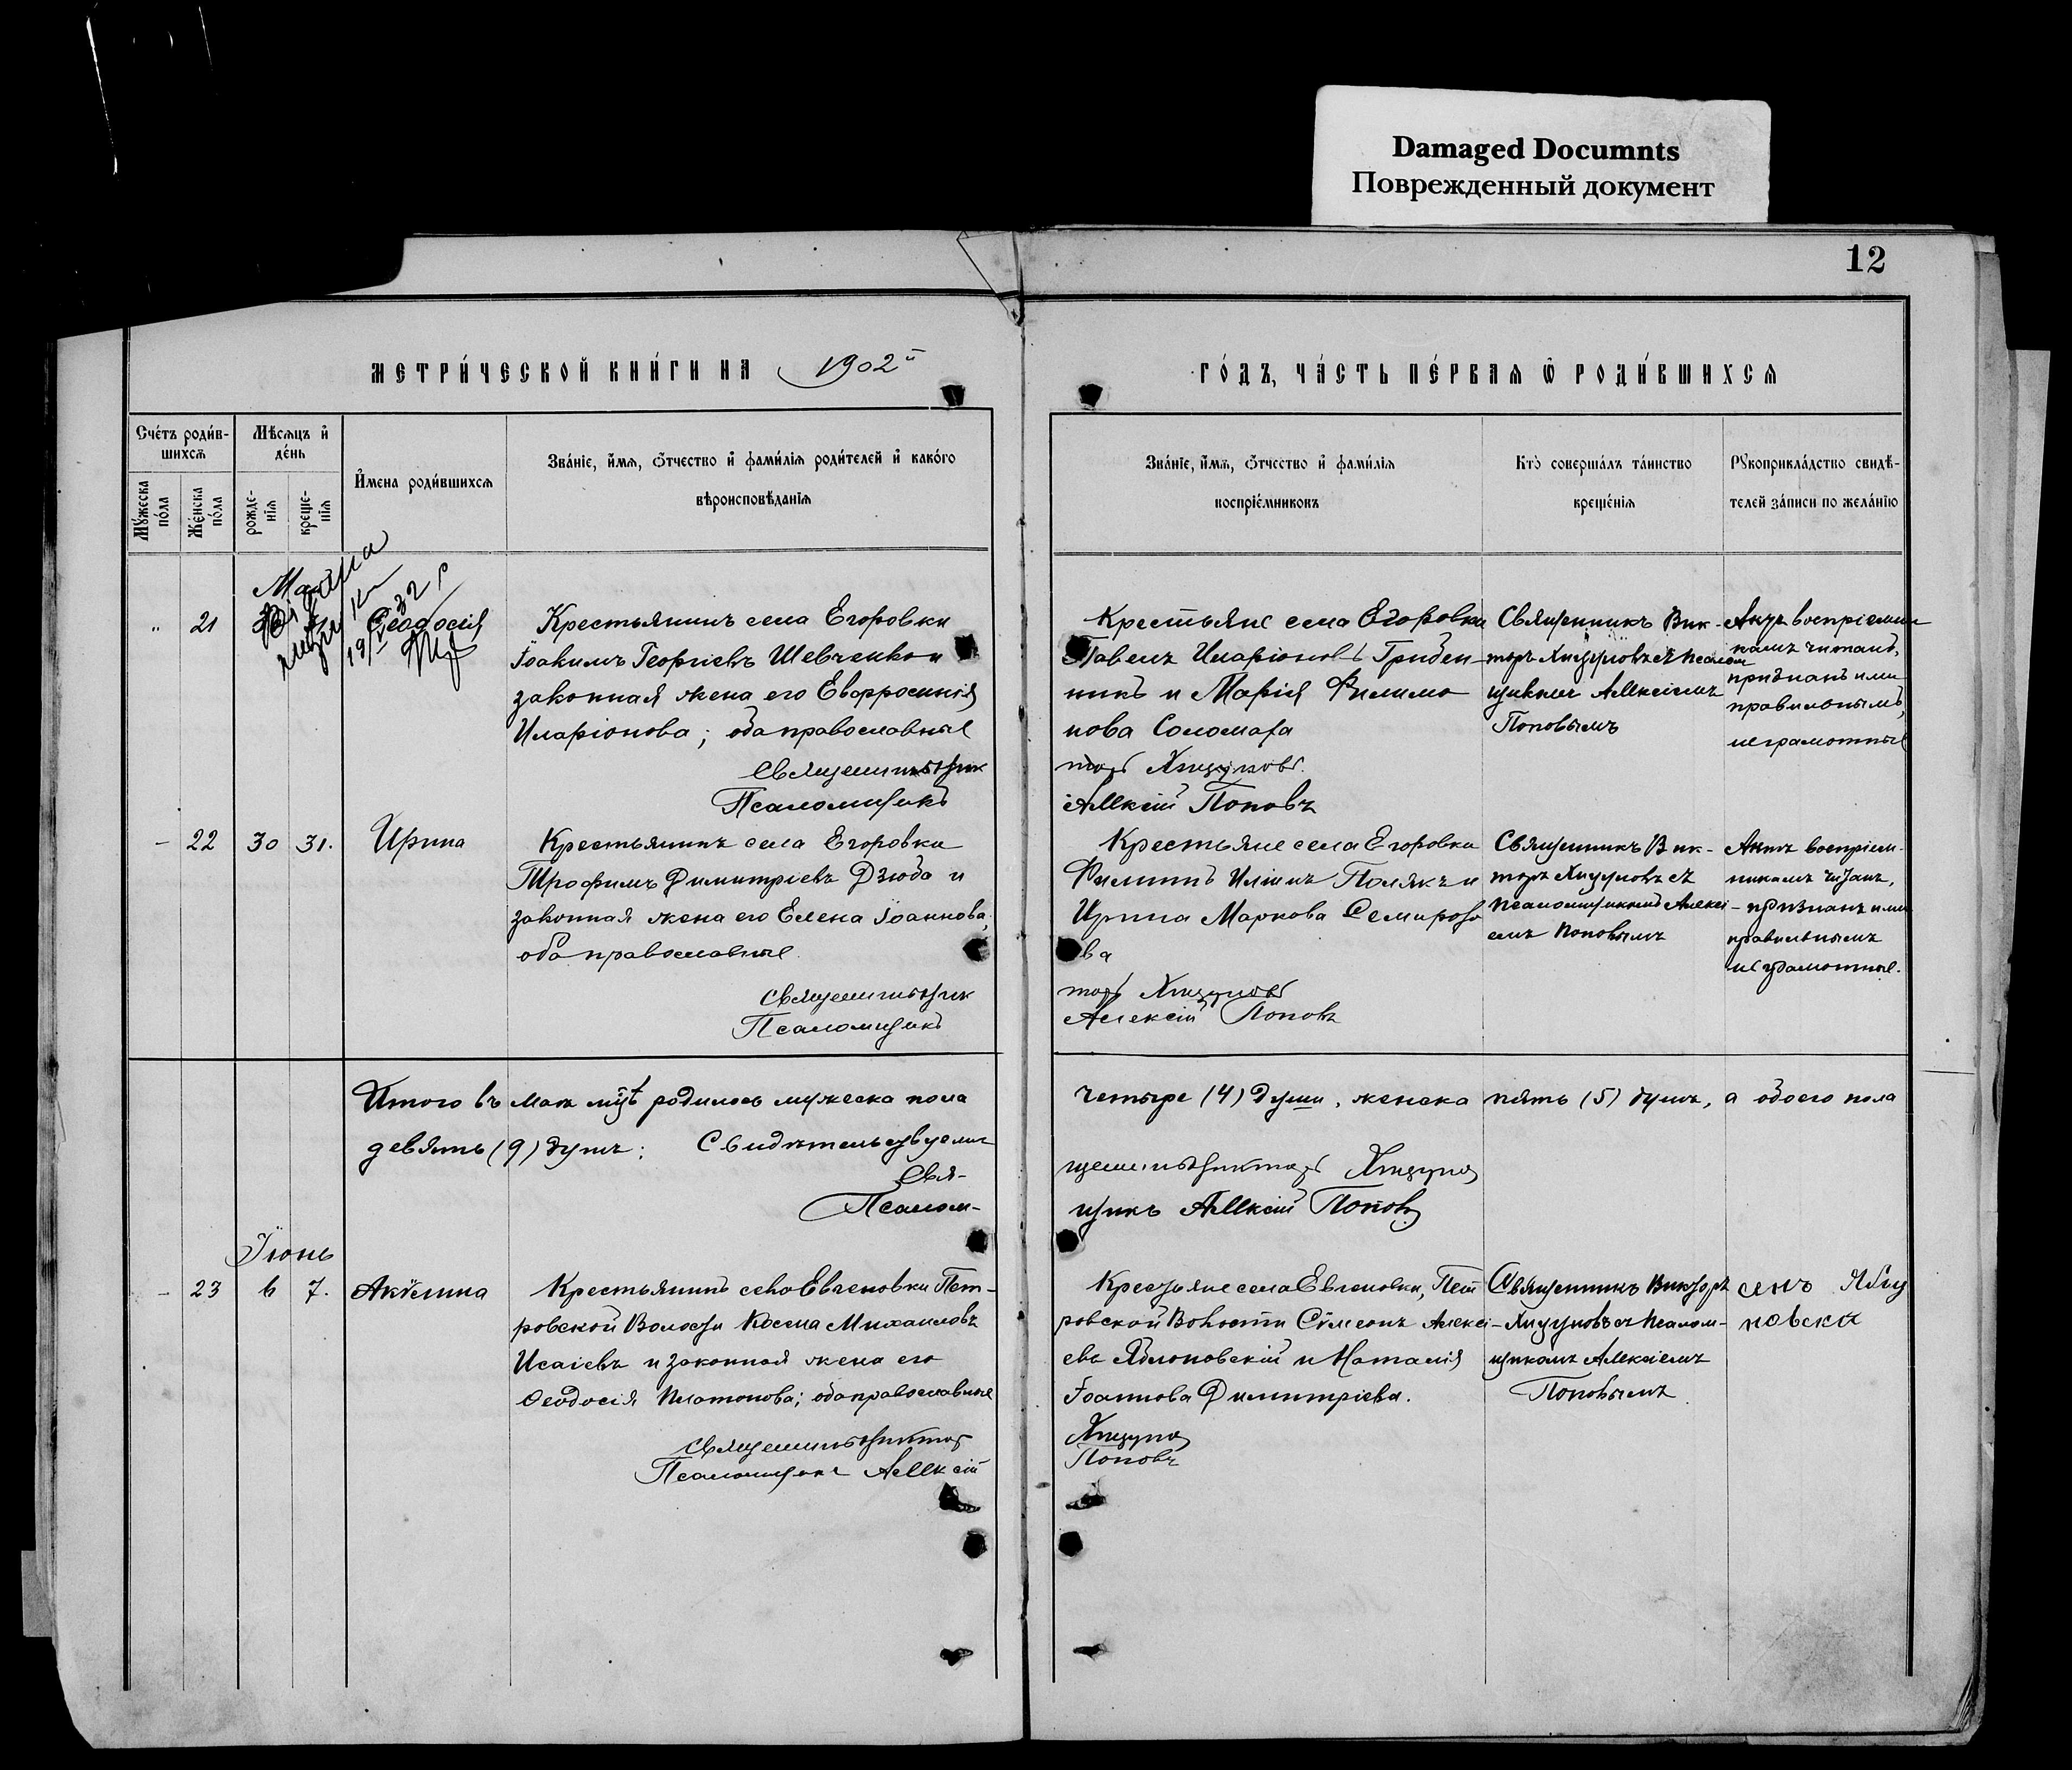 Damaged Documnts
Поврежденный документ
12
МЕТРИ́ЧЕСКОЙ КНИ́ГИ НА 1902й
ГО́ДЪ, ЧА́СТЬ ПЕ́РВАѦ Ѽ РОДИ́ВШИХСѦ
Сче́тъ роди́в-
шихсѧ
Мꙋ́жеска по́ла
Же́нска по́ла
Мѣ́сѧцъ и҆ де́нь
рожде-
нїѧ
креще-
нїѧ
И҆́мена роди́вшихсѧ
Зва́нїе, и҆́мѧ, ѻ҆́тчество и҆ фами́лїѧ роди́телей и҆ како́го
вѣроисповѣ́данїѧ
Зва́нїе, и҆́мѧ, ѻ҆́тчество и҆ фами́лїѧ
воспрїе́мниковъ
Кто̀ соверша́лъ та́инство
креще́нїѧ
Рꙋкоприкла́дство свидѣ́-
телей за́писи по жела́нїю
Май
21
Ѳеодосія
Крестьянинъ села Егоровки
Іоакимъ Георгіевъ Шевченко и
законная жена его Евфросинія
Иларіонова; оба православные
Священникъ Вик
Псаломщикъ
Крестьяне села Егоровки
Павелъ Иларіоновъ Гребен-
никъ и Марія Филимо
нова Соломаха
торъ Хицуновъ
Алексій Поповъ
Священникъ Вик-
торъ Хицуновъ съ псалом
щикомъ Алексіемъ
Поповымъ
Актъ воспріемни
камъ читанъ,
признанъ ими
правильнымъ,
неграмотные
- 22 30 31. Ирина
Крестьянинъ села Егоровки
Трофимъ Димитріевъ Дзюба и
законная жена его Елена Іоаннова,
оба православные.
Священникъ Вик
Псаломщикъ
Крестьяне села Егоровки
Филиппъ Иліинъ Полякъ и
Ирина Маркова
ва
торъ Хицуновъ
Алексій Поповъ
Священникъ Вик-
торъ Хицуновъ съ
псаломщикомъ Алексі-
емъ Поповымъ
Актъ воспріем-
никамъ читанъ,
признанъ ими
правильнымъ
неграмотные.
Итого въ маѣ мц̃ѣ родилось мужеска пола
четыре (4) души, женска пять (5) душъ, а обоего пола
девять (9) душъ; Свидѣтельствуемъ
Свя-
щенникъ Викторъ Хицунов
Псалом-
щикъ Алексій Поповъ
Іюнь
- 23 6 7. Акѵлина
Крестьянинъ села Евгеновки Пет-
ровской Волости Косма Михаиловъ
Исаевъ и законная жена его
Ѳеодосія Платонова; оба православные
Священникъ Виктор
Псаломщикъ Алексій
Крестьяне села Евгеновки, Пет
ровской Волости Сѵмеонъ Алексі-
евъ Яблоновскій и Наталія
Іоаннова Димитріева.
Хицунов
Поповъ
Священникъ Викторъ
Хицуновъ съ псалом-
щикомъ Алексіемъ
Поповымъ